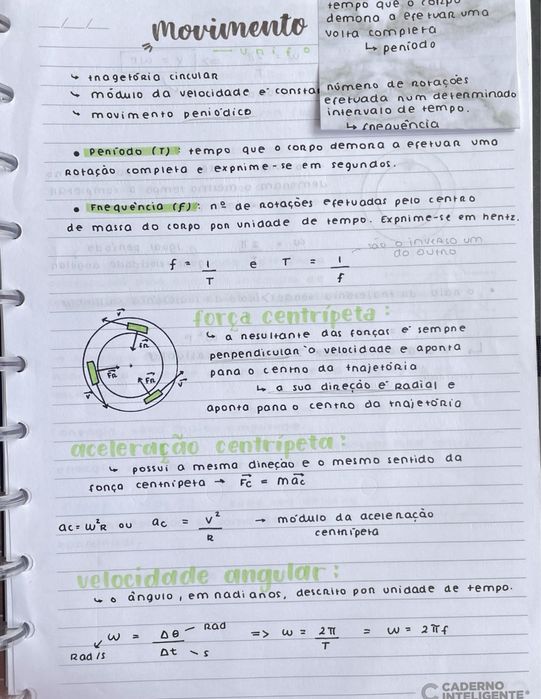 __/__/__
movimento
tempo que o corpo
demora a efetuar uma
volta completa
↳ período
número de rotações
efetuada num determinado
intervalo de tempo.
↳ frequência
↳ trajetória circular
↳ módulo da velocidade é consta
↳ movimento periódico
• Período (T): tempo que o corpo demora a efetuar uma
Rotação completa e exprime-se em segundos.
• Frequência (f): nº de rotações efetuadas pelo centro
de massa do corpo por unidade de tempo. Exprime-se em hertz.
f = 1/T e T = 1/f
são o inverso um
do outro
força centrípeta:
↳ a resultante das forças é sempre
perpendicular à velocidade e aponta
para o centro da trajetória
↳ a sua direção é Radial e
aponta para o centro da trajetória
v FR
FR FR
v v
aceleração centrípeta:
↳ possui a mesma direção e o mesmo sentido da
força centrípeta → Fc = mac
ac = ω²R ou ac = v²/R → módulo da aceleração
centrípeta
velocidade angular:
↳ o ângulo, em radianos, descrito por unidade de tempo.
ω = Δθ/Δt => ω = 2π/T = ω = 2πf
Rad
Rad/s
s
CADERNO
INTELIGENTE®